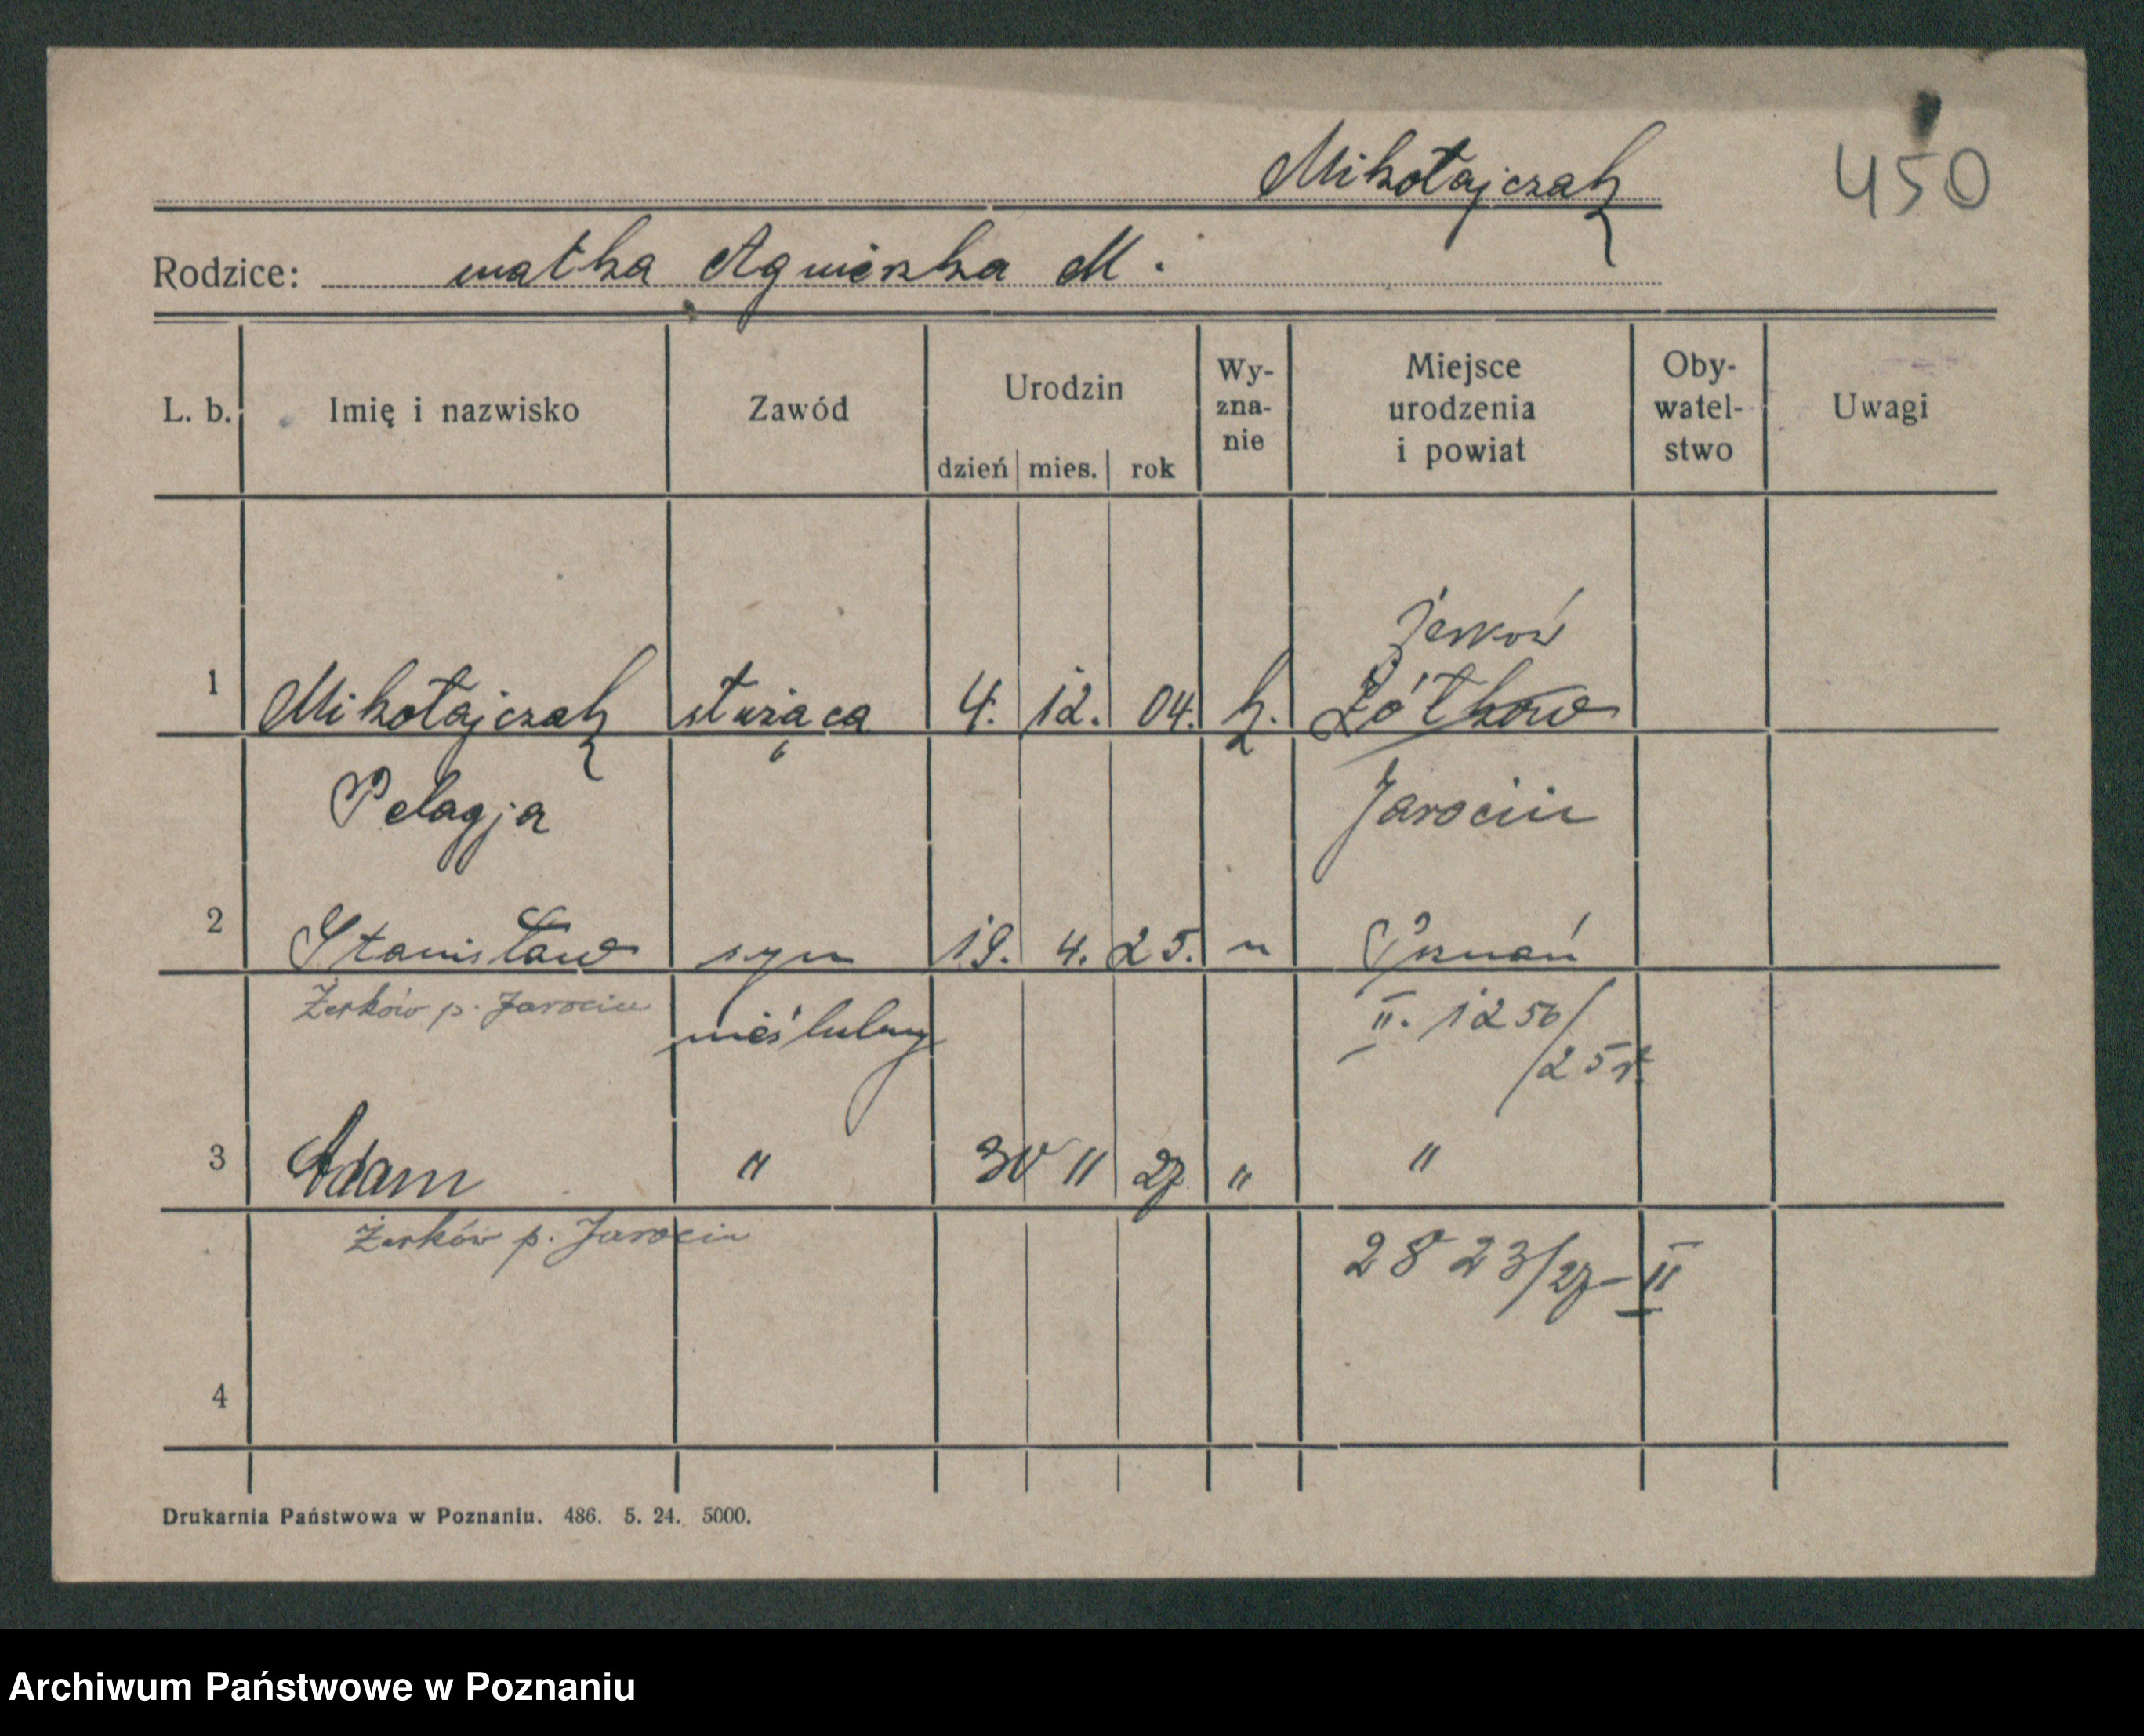 Mikołajczak
450
Rodzice: matka Agnieszka M.
L. b. Imię i nazwisko Zawód Urodzin dzień mies. rok Wy-zna-nie Miejsce urodzenia i powiat Oby-watel-stwo Uwagi
Żerków
1 Mikołajczak służąca 4. 12. 04. k. Żółków
Pelagja Jarocin
2 Stanisław syn 19. 4. 25. " Poznań
Żerków p. Jarocin nieślubny II. 1250/
/25 r.
3 Adam " 30 11 27 " "
Żerków p. Jarocin 2823/27 - II
4
Drukarnia Państwowa w Poznaniu. 486. 5. 24. 5000.
Archiwum Państwowe w Poznaniu